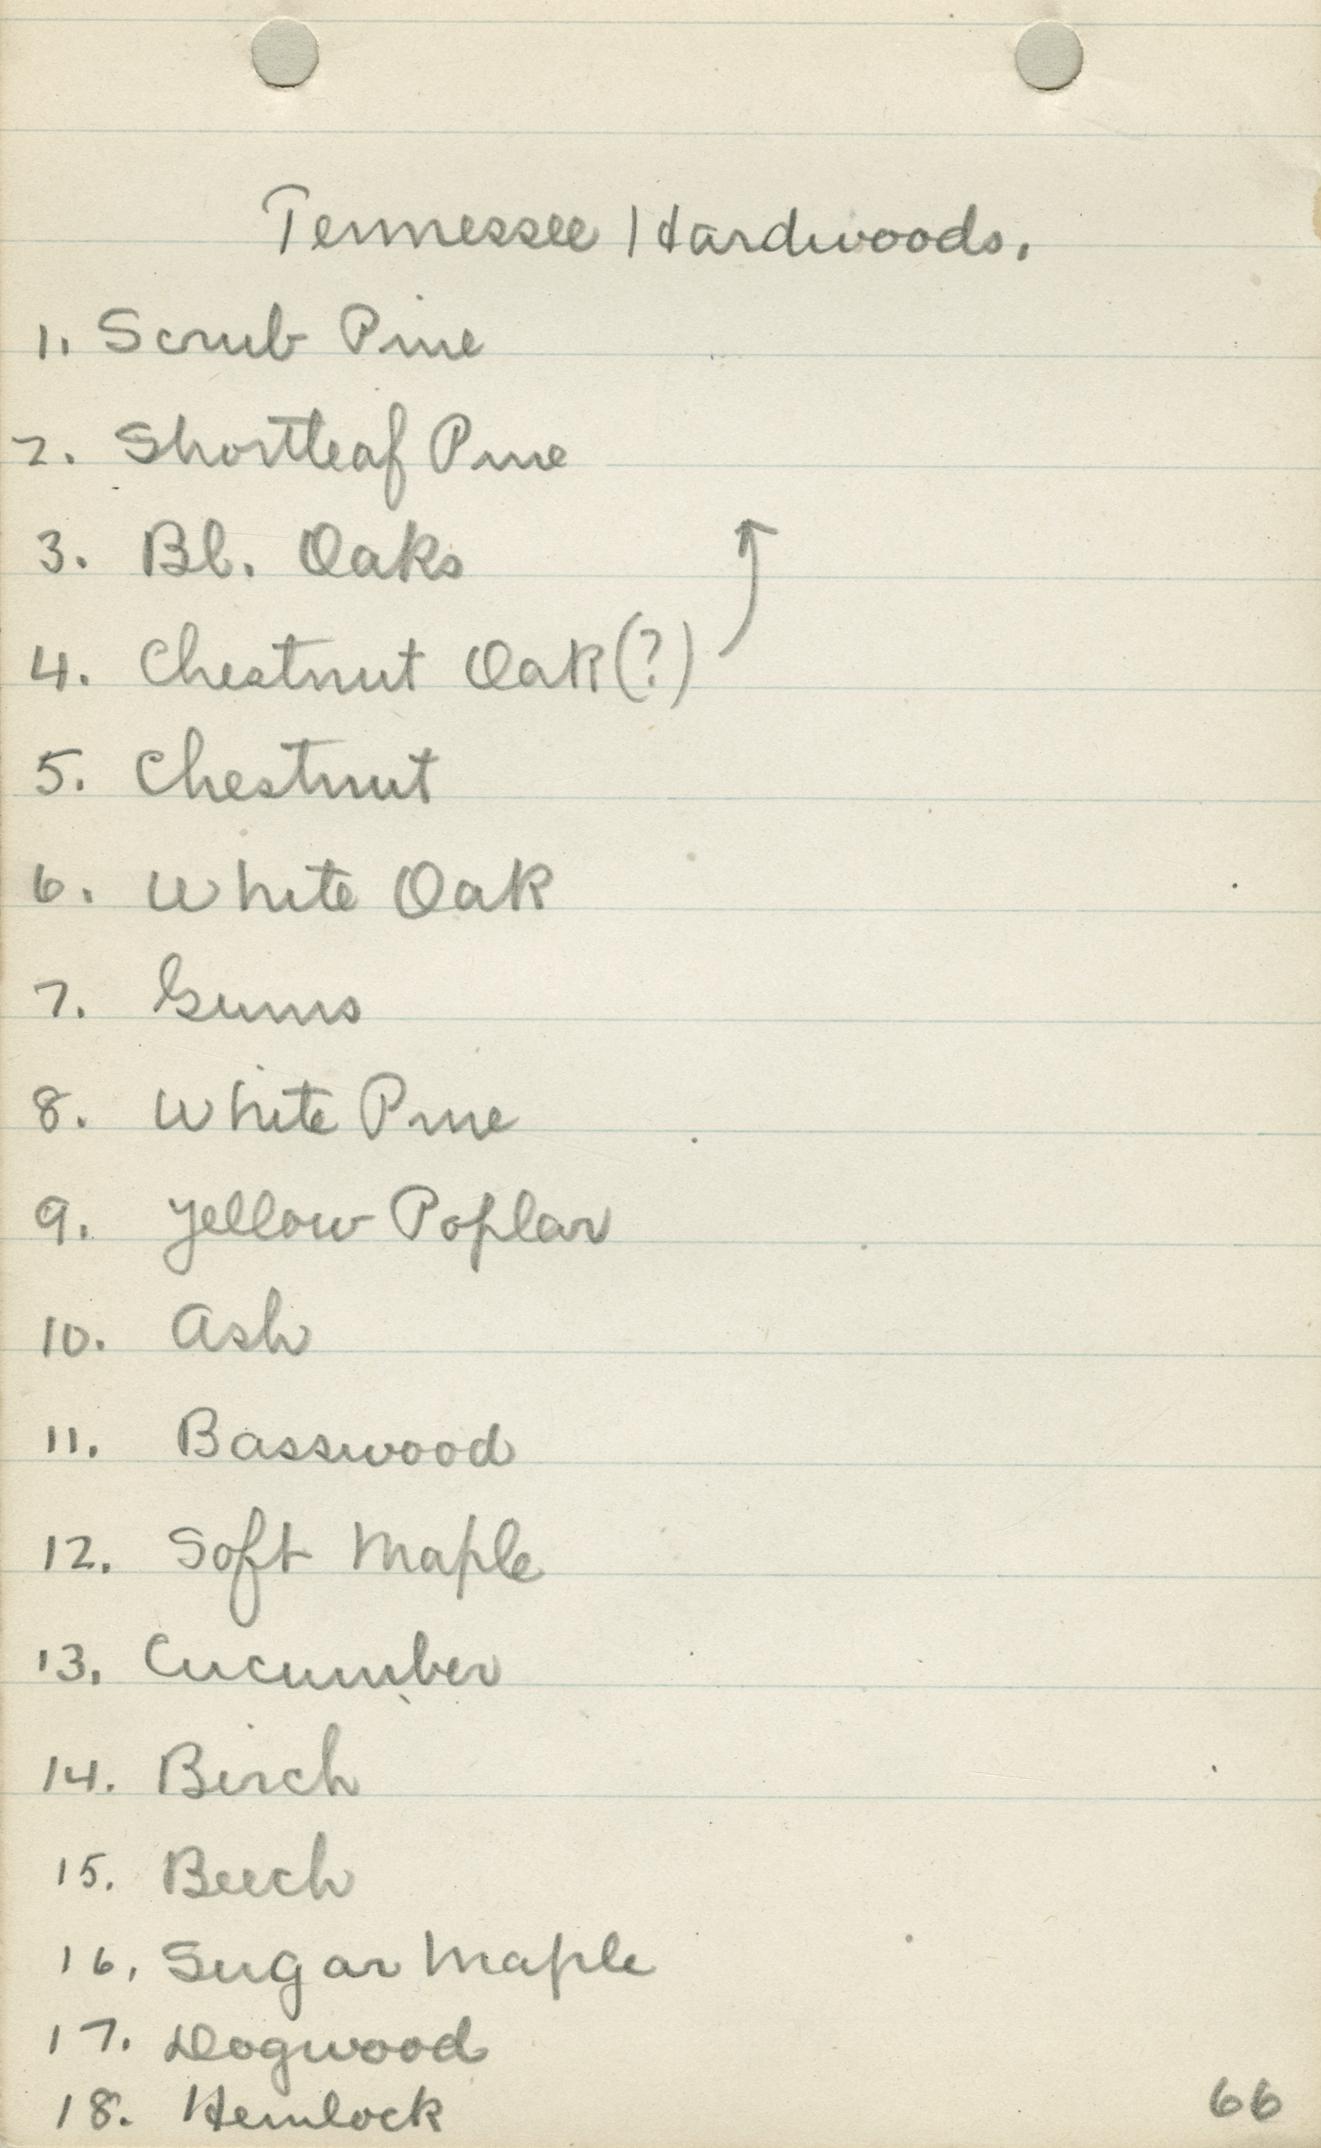 Tennessee Hardwoods.
1. Scrub Pine
2. Shortleaf Pine
3. Bl. Oaks
4. Chestnut Oak (?)
5. Chestnut
6. White Oak
7. Gums
8. White Pine
9. Yellow Poplar
10. Ash
11. Basswood
12. Soft Maple
13. Cucumber
14. Birch
15. Beech
16. Sugar Maple
17. Dogwood
18. Hemlock
66